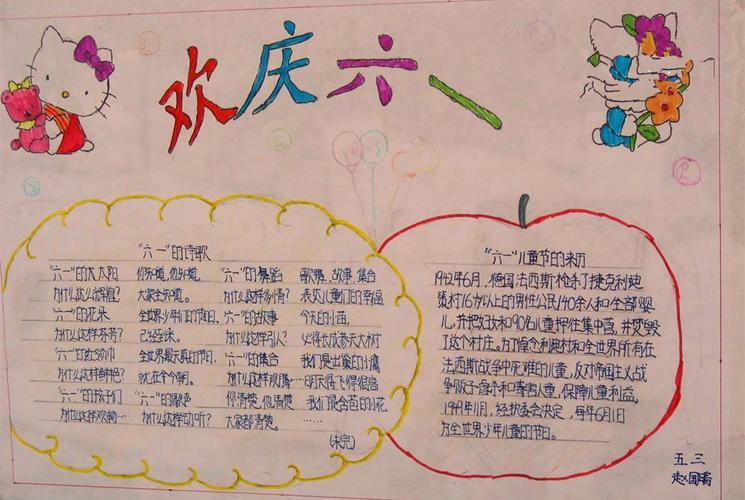 欢庆六一
"六一"的诗歌
"六一"的大太阳 你知道,他知道, "六一"的舞蹈 歌舞、故事、集合
为什么这么辉煌? 大家全知道。 为什么这样多情? 表达儿童们的幸福
"六一"的花朵 全世界少年们的节日, "六一"的故事 今天的小苗,
为什么这样芬芳? 已经到来。 为什么这样引人? 必将长成参天大树
"六一"的红领巾 全世界最天真的节日, "六一"的集合 我们是出巢的小鹰
为什么这样鲜艳? 就在今朝。 为什么这样欢腾… 明天将飞得很高
"六一"的孩子们 "六一"的歌声 你清楚,他清楚 我们是含苞的小花
为什么这样欢畅… 为什么这样动听? 大家都清楚。 ……
(未完)
"六一"儿童节的来历
1942年6月,德国法西斯枪杀了捷克利迪
策村16岁以上的男性公民140余人和全部婴
儿,并把妇女和90名儿童押往集中营,并焚毁
了这个村庄。为了悼念利迪村和全世界所有在
法西斯战争中死难的儿童,反对帝国主义战
争贩子虐杀和毒害儿童,保障儿童利益。
1949年11月,经执委会决定,每年6月1日
为全世界少年儿童的节日。
五.三
赵国